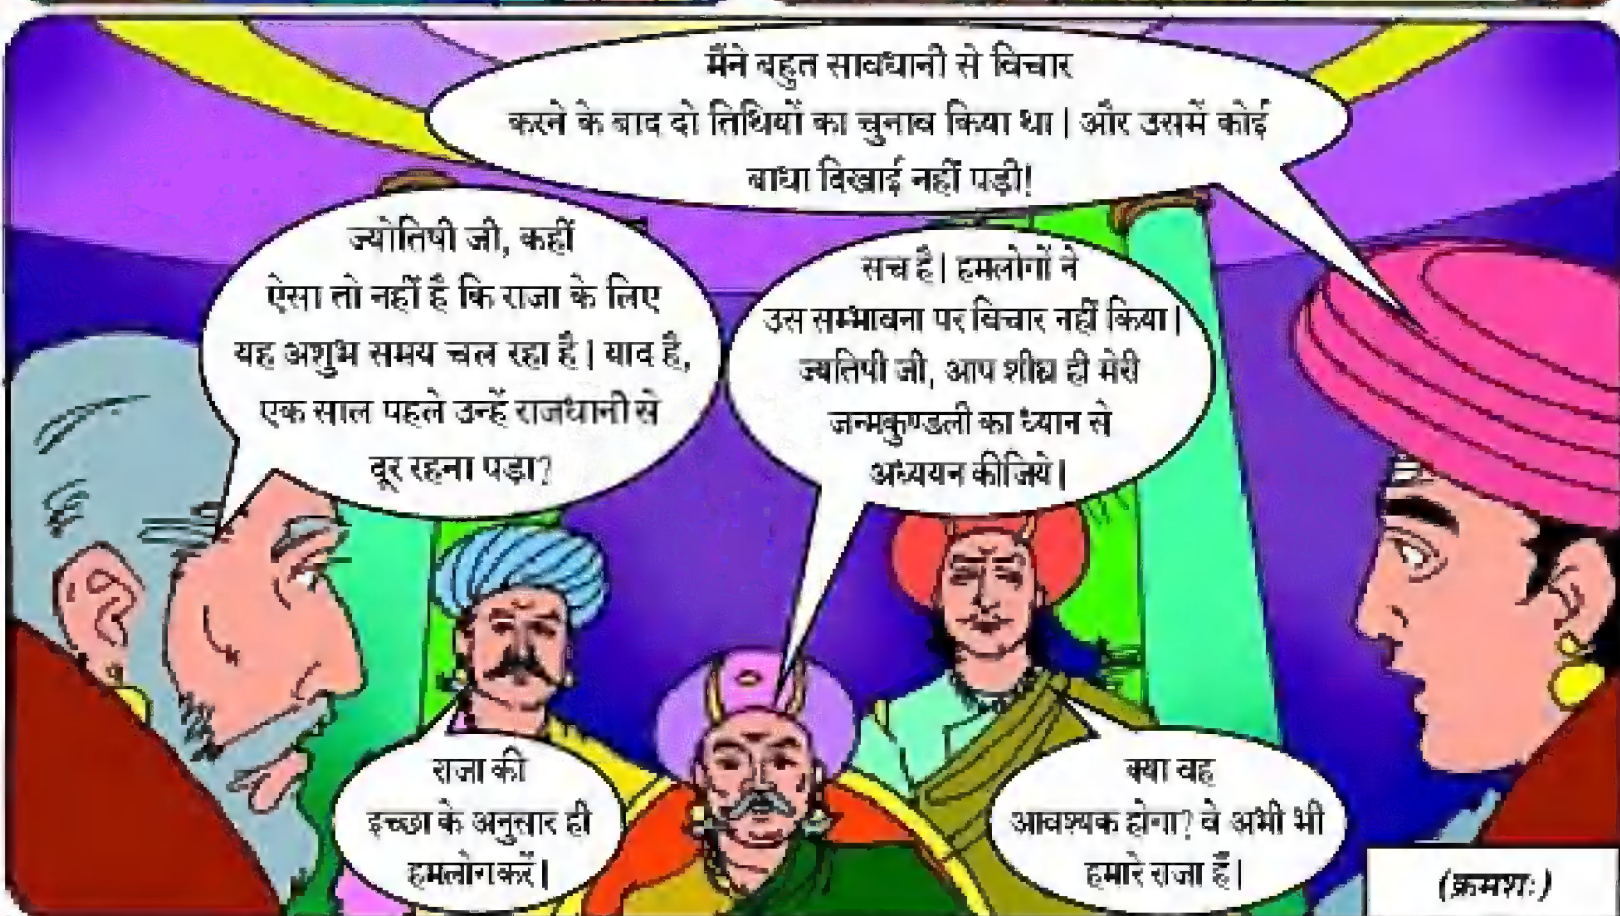 मैंने बहुत सावधानी से विचार
करने के बाद दो तिथियों का चुनाव किया था | और उसमें कोई
बाधा दिखाई नहीं पड़ी!
ज्योतिषी जी, कहीं
ऐसा तो नहीं है कि राजा के लिए
यह अशुभ समय चल रहा है | याद है,
एक साल पहले उन्हें राजधानी से
दूर रहना पड़ा?
सच है | हमलोगों ने
उस सम्भावना पर विचार नहीं किया |
ज्यतिषी जी, आप शीघ्र ही मेरी
जन्मकुण्डली का ध्यान से
अध्ययन कीजिये |
राजा की
इच्छा के अनुसार ही
हमलोग करें |
क्या वह
आवश्यक होगा? वे अभी भी
हमारे राजा हैं |
(क्रमशः)